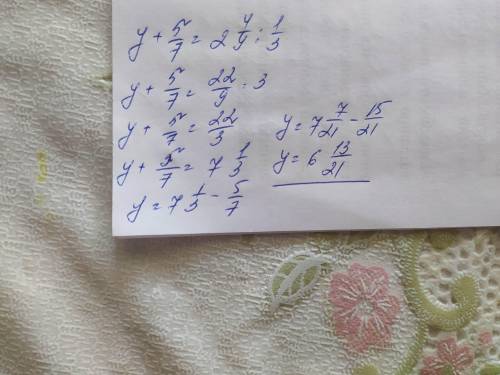 y + 5/7 = 2 4/9 : 1/3
y + 5/7 = 22/9 · 3
y + 5/7 = 22/3
y + 5/7 = 7 1/3
y = 7 1/3 - 5/7
y = 7 7/21 - 15/21
y = 6 13/21